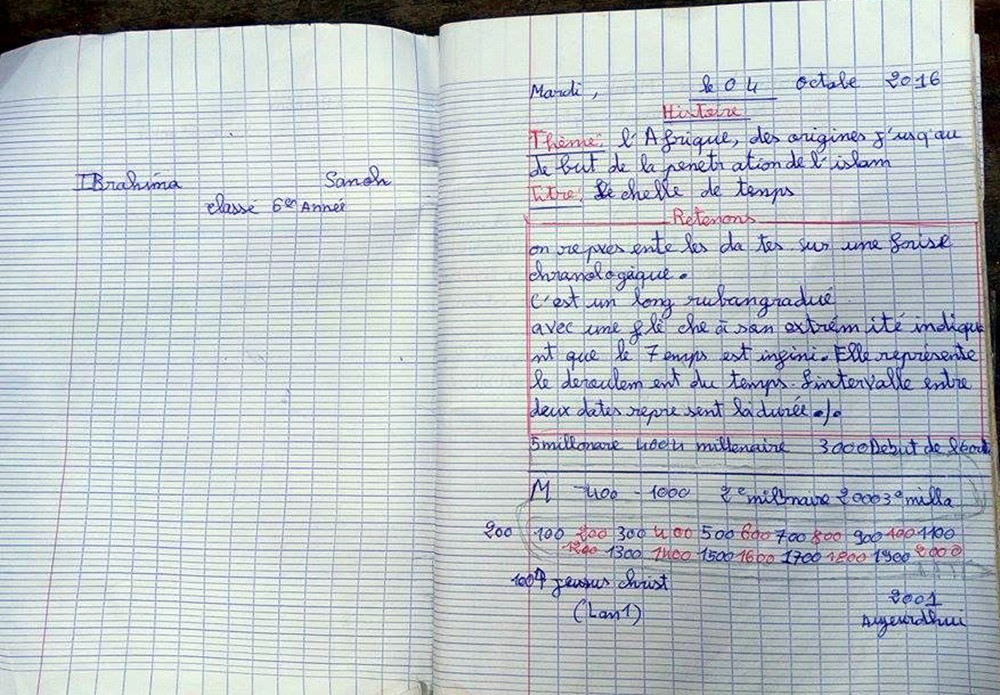 IBrahima Sanoh
classe 6er Année
Mardi, le 04 octobe 2016
Histoire
Thème: l'Afrique, des origines j'usq'au
de but de la penetration de l'islam
titre: Le chelle de temps
Retenons
on repres ente les da tes sur une frise
chronologique.
C'est un long rubangradué
avec une flè che à son extrém ité indique
nt que le Temps est infini. Elle représente
le deroulem ent du temps. L'intervalle entre
deux dates repre sent la durée./.
5millonare 4004 millenaire 3000 Debut de
M -400 - 1000 2e millnaire 2000 3e milla
200 100 200 300 400 500 600 700 800 900 100 1100
1200 1300 1400 1500 1600 1700 1800 1900 2000
100 jeusus christ
(Lan1) 2001
Aujeurdhui